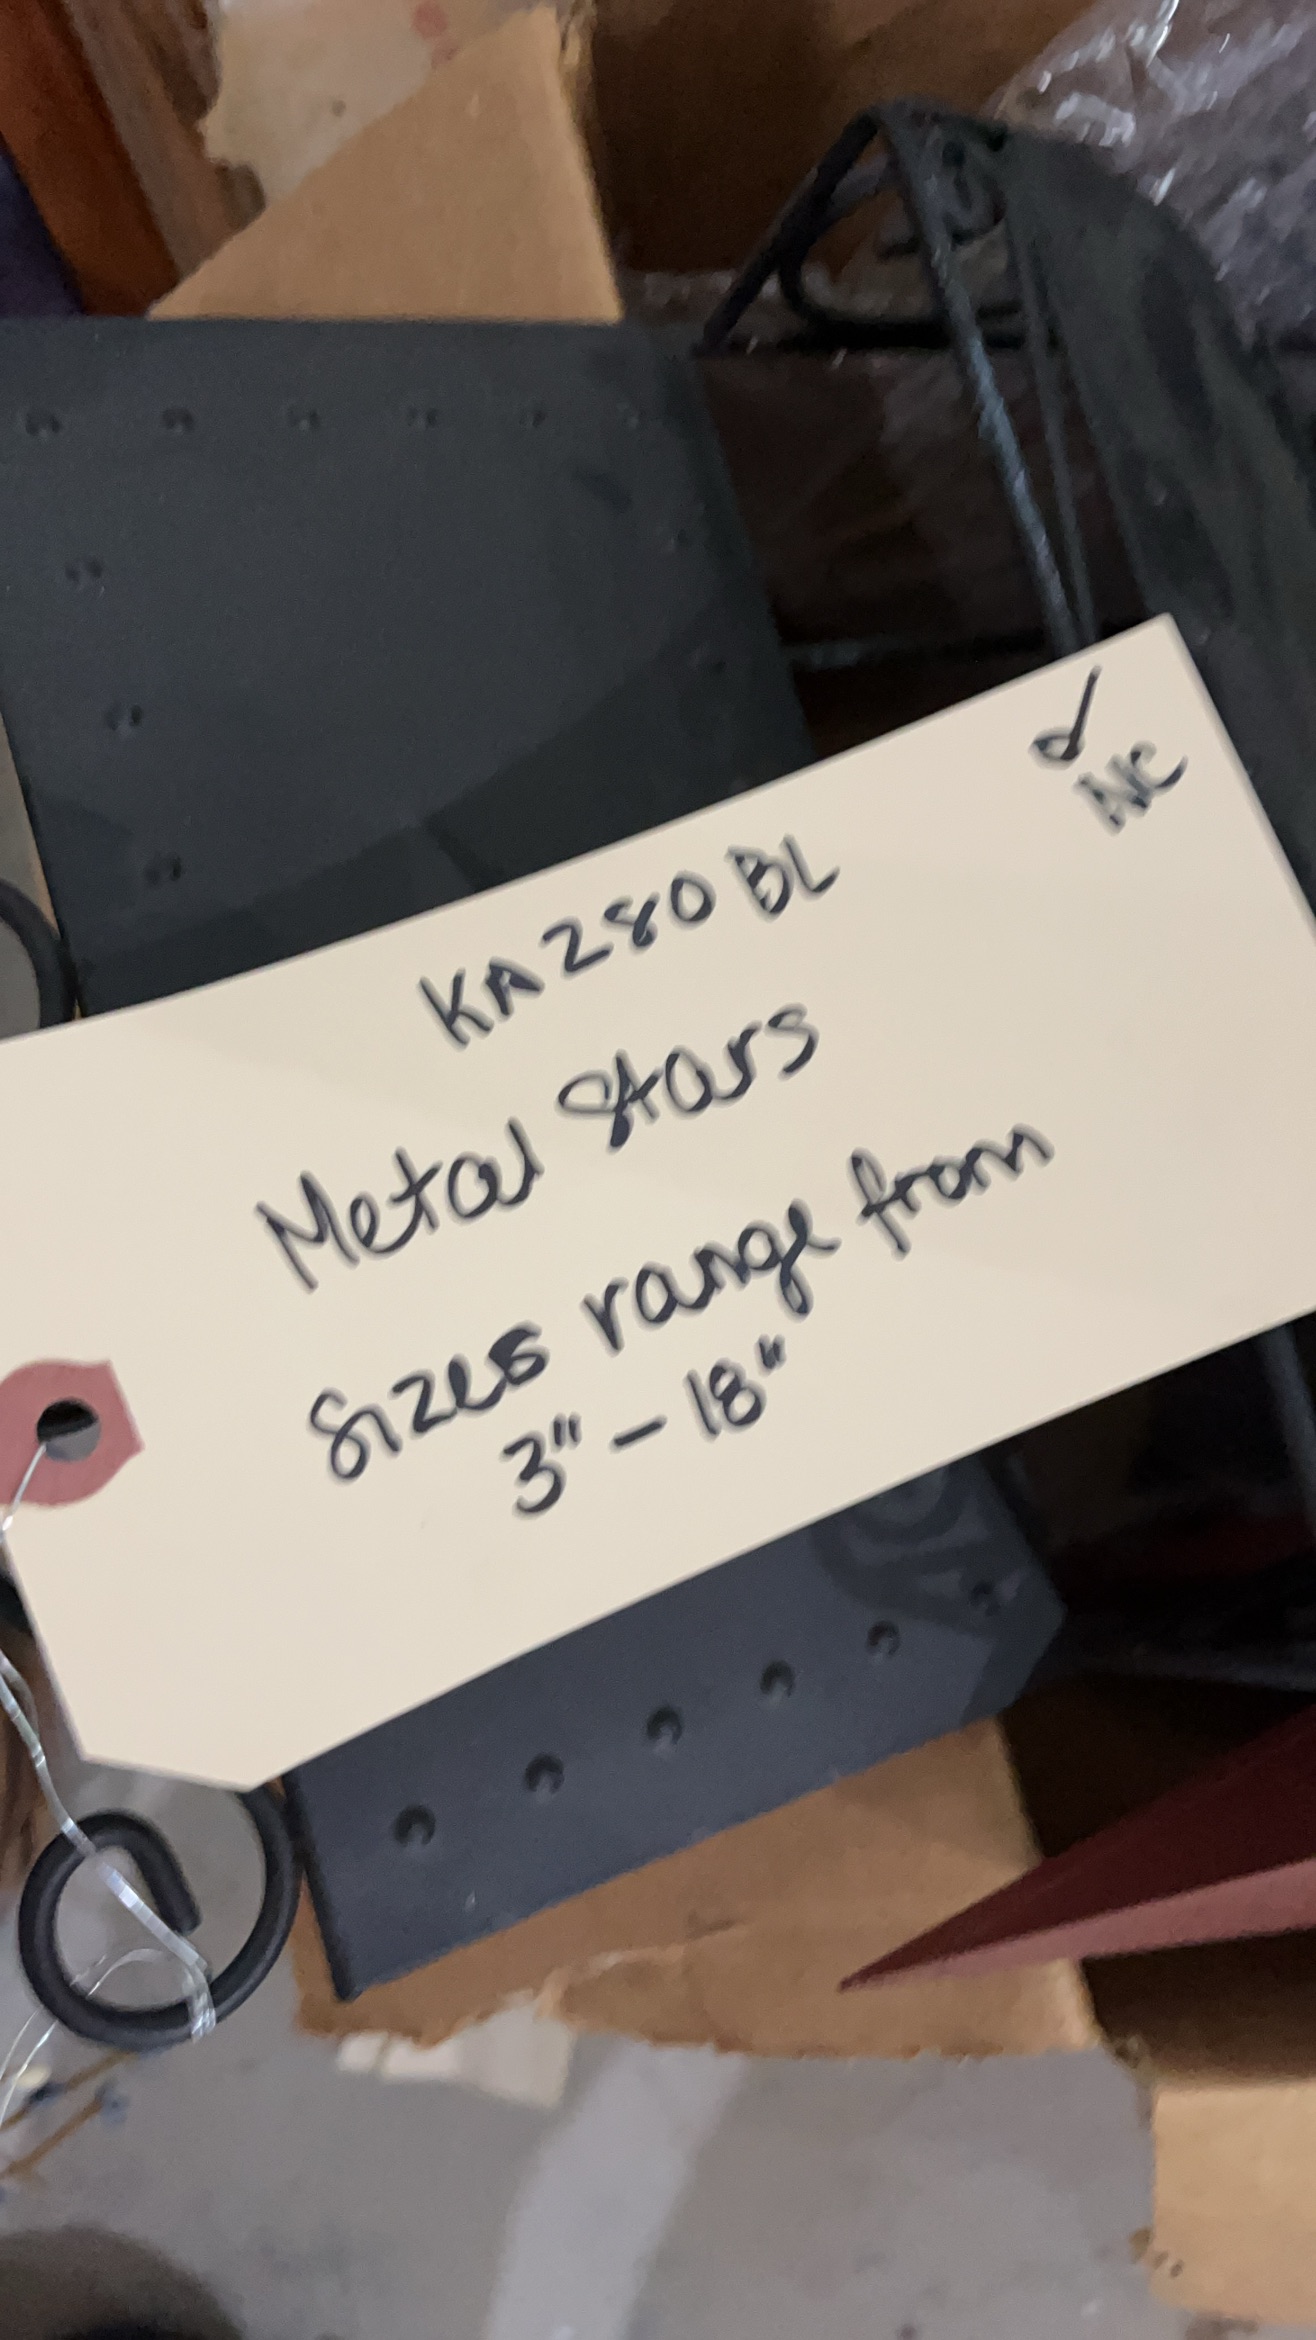 ✓
NC
KA280BL
Metal Stars
Sizes range from
3" - 18"